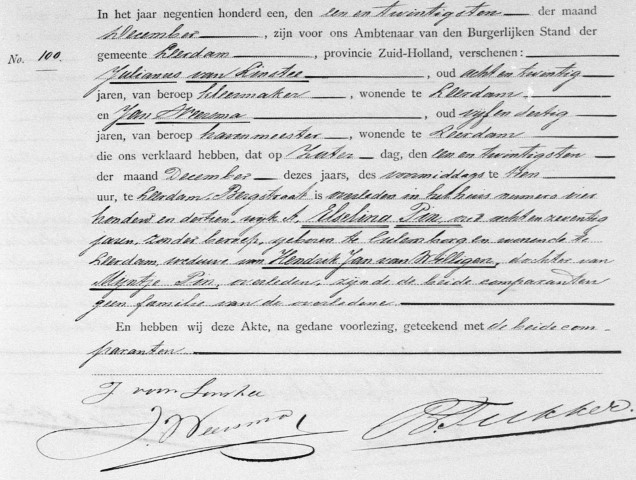 In het jaar negentien honderd een, den een en twintigsten der maand
December, zijn voor ons Ambtenaar van den Burgerlijken Stand der
No. 100. gemeente Leerdam, provincie Zuid-Holland, verschenen:
Julianus van Linstee, oud acht en twintig
jaren, van beroep kleermaker, wonende te Leerdam
en Jan Weersma, oud vijf en dertig
jaren, van beroep havenmeester, wonende te Leerdam
die ons verklaard hebben, dat op Zater dag, den een en twintigsten
der maand December dezes jaars, des voormiddags te tien
uur, te Leerdam, Bergstraat is overleden in het huis numero vier
honderd en dertien, wijk A, Elselina Pen, oud acht en zeventig
jaren, zonder beroep, geboren te Culemborg en wonende te
Leerdam, weduwe van Hendrik Jan van Willigen, dochter van
Mijntje Pen, overleden, zijnde de beide comparanten
geen familie van de overledene
En hebben wij deze Akte, na gedane voorlezing, geteekend met de beide com-
paranten
J van Linstee
J. Weersma
B. Fukker.